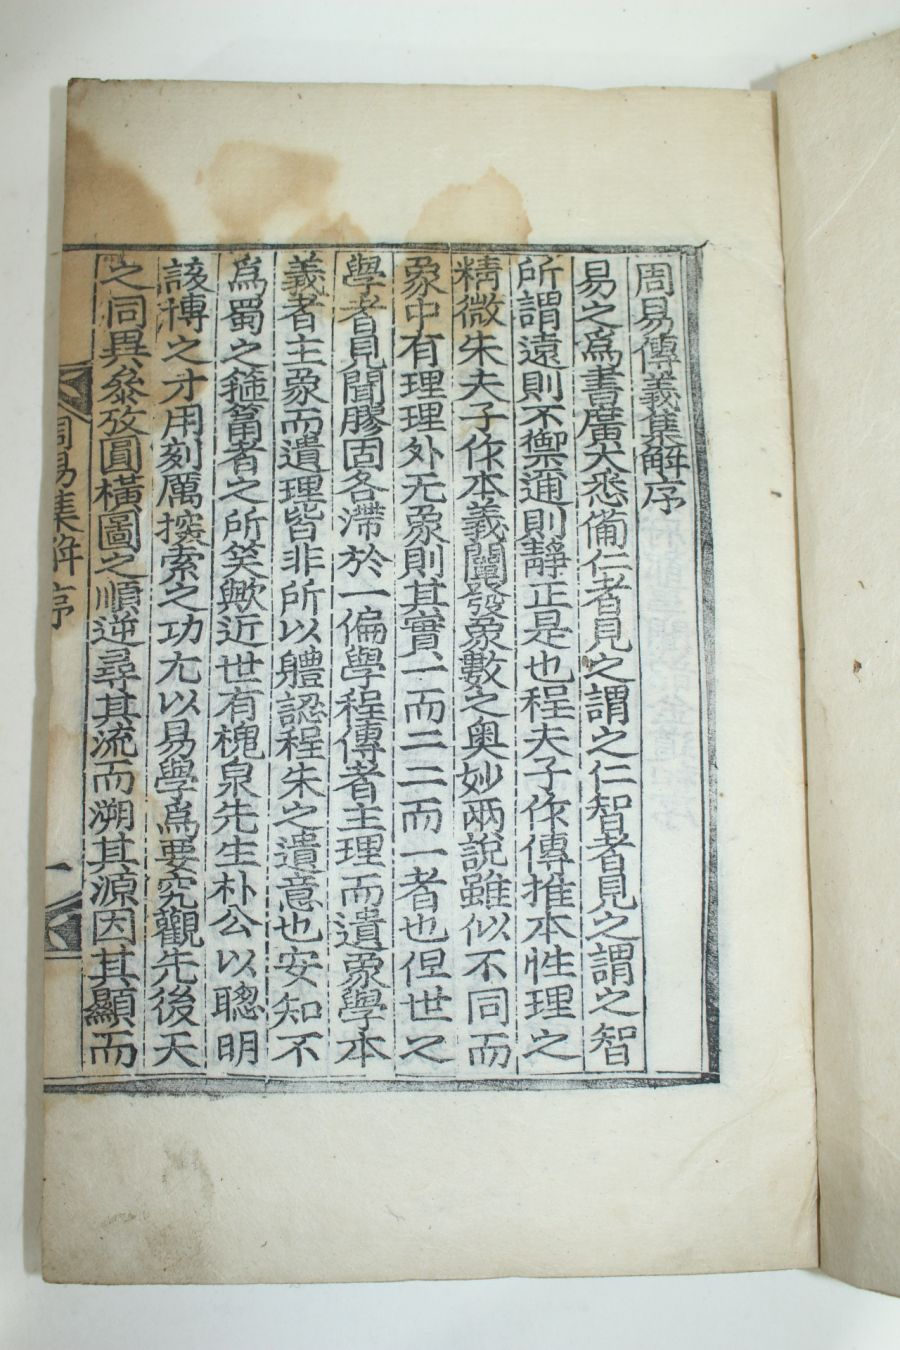 周易傳義集解序
易之爲書廣大悉僃仁者見之謂之仁智者見之謂之智
所謂遠則不禦邇則靜正是也程夫子作傳推本性理之
精微朱夫子作本義闡發象數之奧妙兩說雖似不同而
象中有理理外无象則其實一而二二而一者也但世之
學者見聞膠固各滯於一偏學程傳者主理而遺象學本
義者主象而遺理皆非所以體認程朱之遺意也安知不
爲蜀之箍篃者之所笑歟近世有槐泉先生朴公以聰明
該博之才用刻厲探索之功尤以易學爲要究觀先後天
之同異叅攷圓橫圖之順逆尋其流而溯其源因其顯而
周易集解序
一